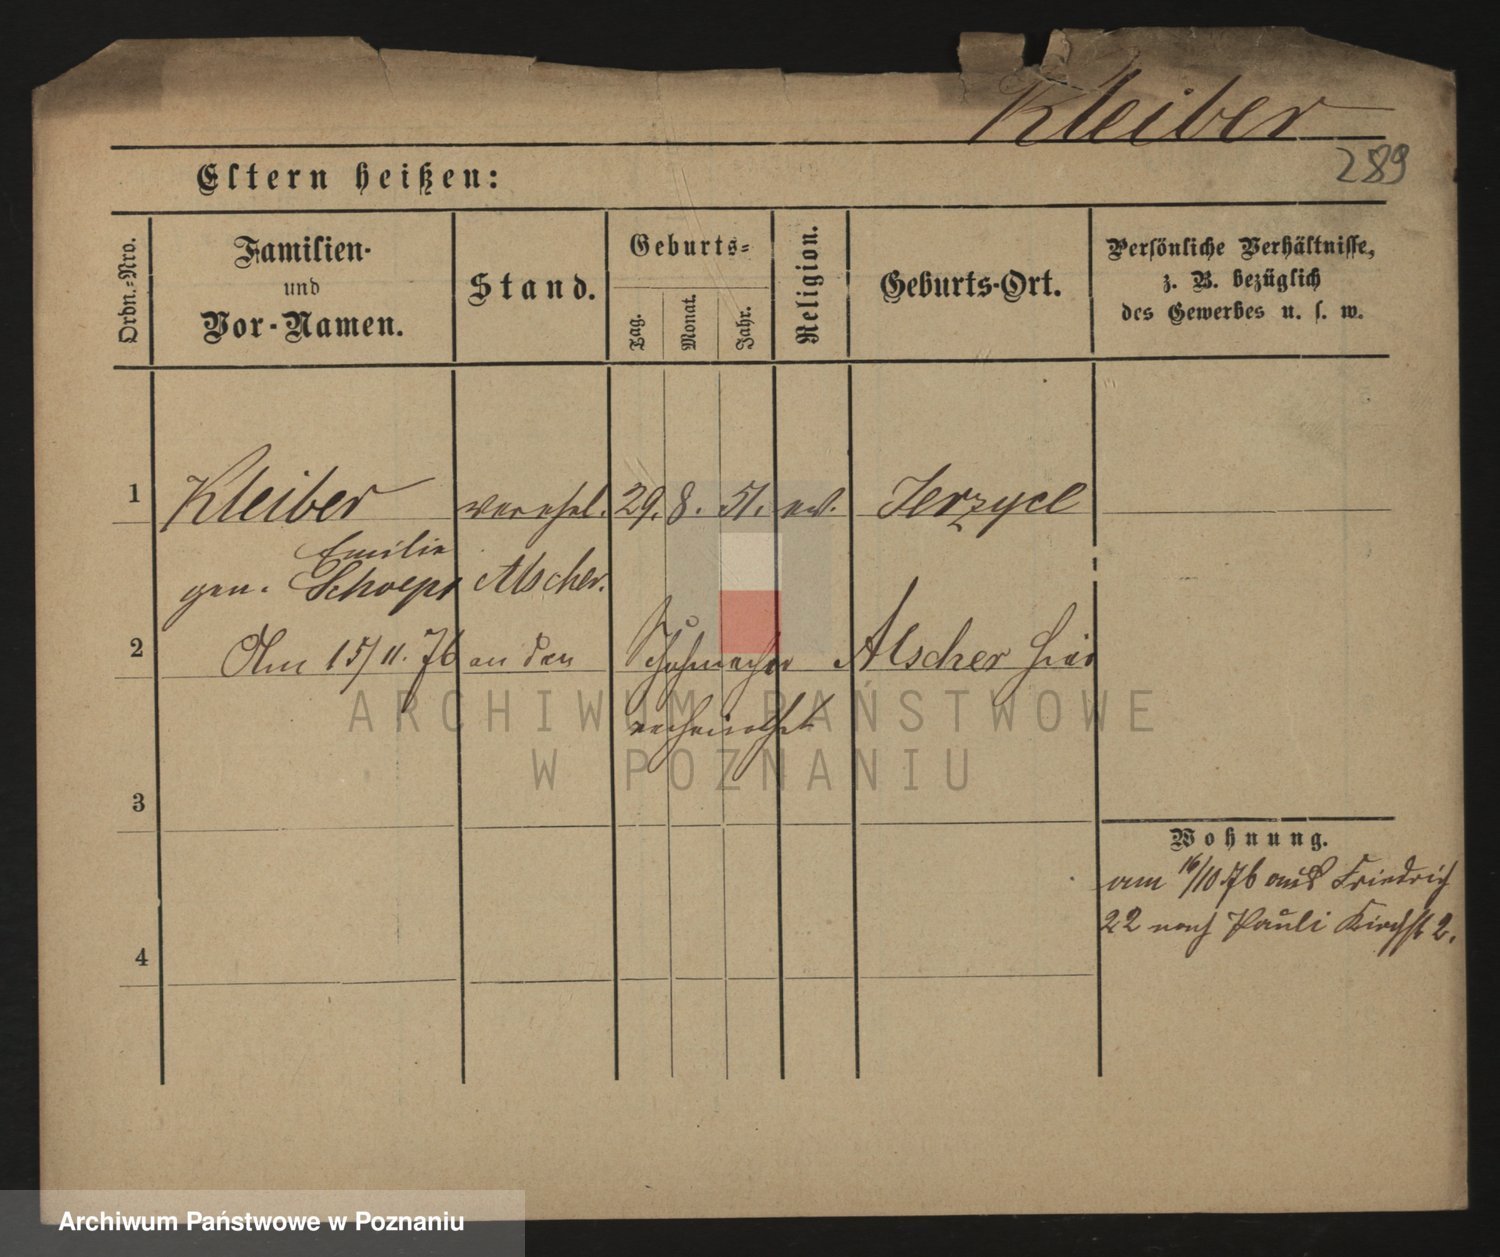 Kleiber
289
Eltern heißen:
Ordn.-Nro.
Familien-
und
Vor-Namen.
Stand.
Geburts-
Tag.
Monat.
Jahr.
Religion.
Geburts-Ort.
Persönliche Verhältnisse,
z. B. bezüglich
des Gewerbes u. s. w.
1 Kleiber verehel. 29. 8. 51. ev. Jerzyce
Emilie
gen. Alscher.
2 Am 15/11. 76 an den Schuhmacher Alscher hier
verheirathet
3
4
Wohnung.
am 16/10 76 aus Friedrich
22 nach Pauli Kirchst 2.
ARCHIWUM PAŃSTWOWE
W POZNANIU
Archiwum Państwowe w Poznaniu